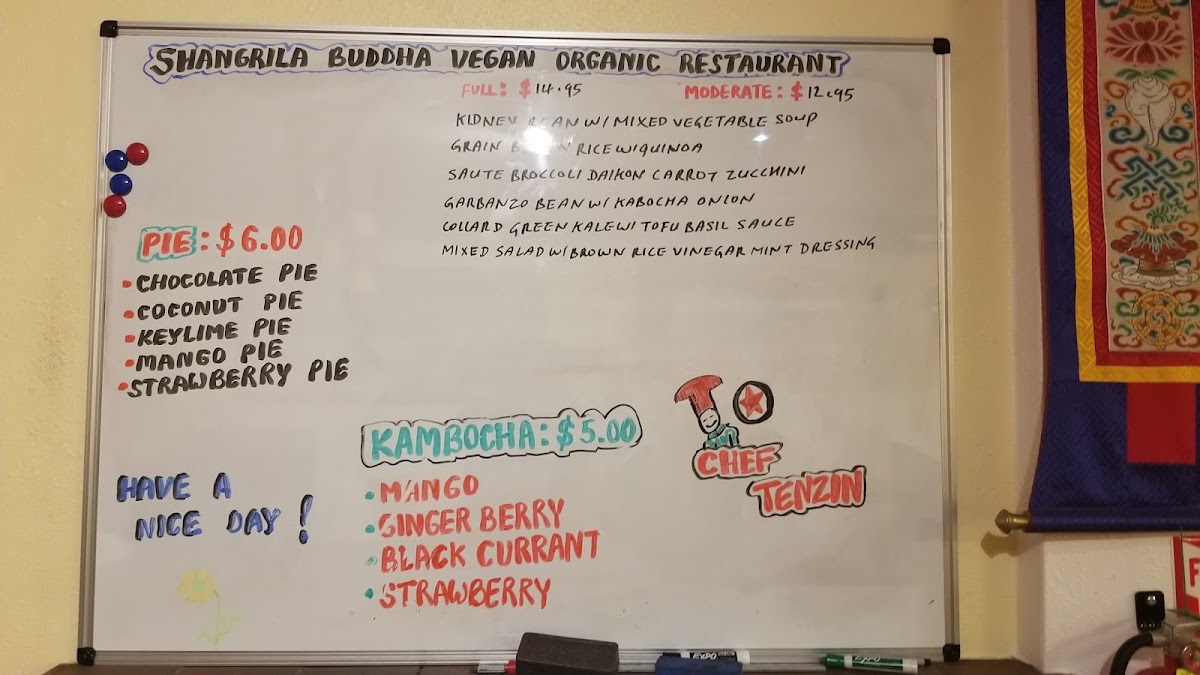 SHANGRILA BUDDHA VEGAN ORGANIC RESTAURANT
FULL: $14.95 MODERATE: $12.95
KIDNEY BEAN W/ MIXED VEGETABLE SOUP
GRAIN BROWN RICE W/QUINOA
SAUTE BROCCOLI DAIKON CARROT ZUCCHINI
GARBANZO BEAN W/ KABOCHA ONION
COLLARD GREEN KALE W/ TOFU BASIL SAUCE
MIXED SALAD W/ BROWN RICE VINEGAR MINT DRESSING
PIE: $6.00
• CHOCOLATE PIE
• COCONUT PIE
• KEYLIME PIE
• MANGO PIE
• STRAWBERRY PIE
KAMBOCHA: $5.00
• MANGO
• GINGER BERRY
• BLACK CURRANT
• STRAWBERRY
HAVE A
NICE DAY!
CHEF
TENZIN
EXPO
EXPO